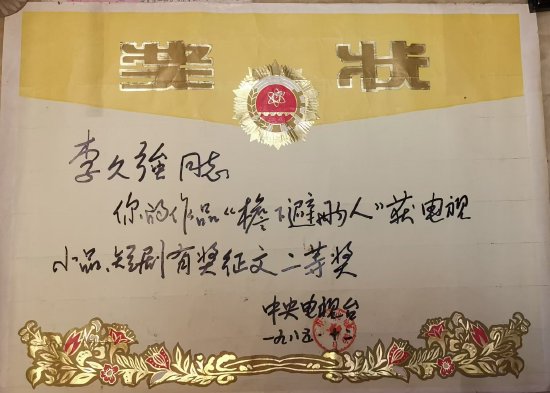 奖状
李久强同志
你的作品“檐下避雨的人”获电视
小品、短剧有奖征文二等奖
中央电视台
一九八五、十二